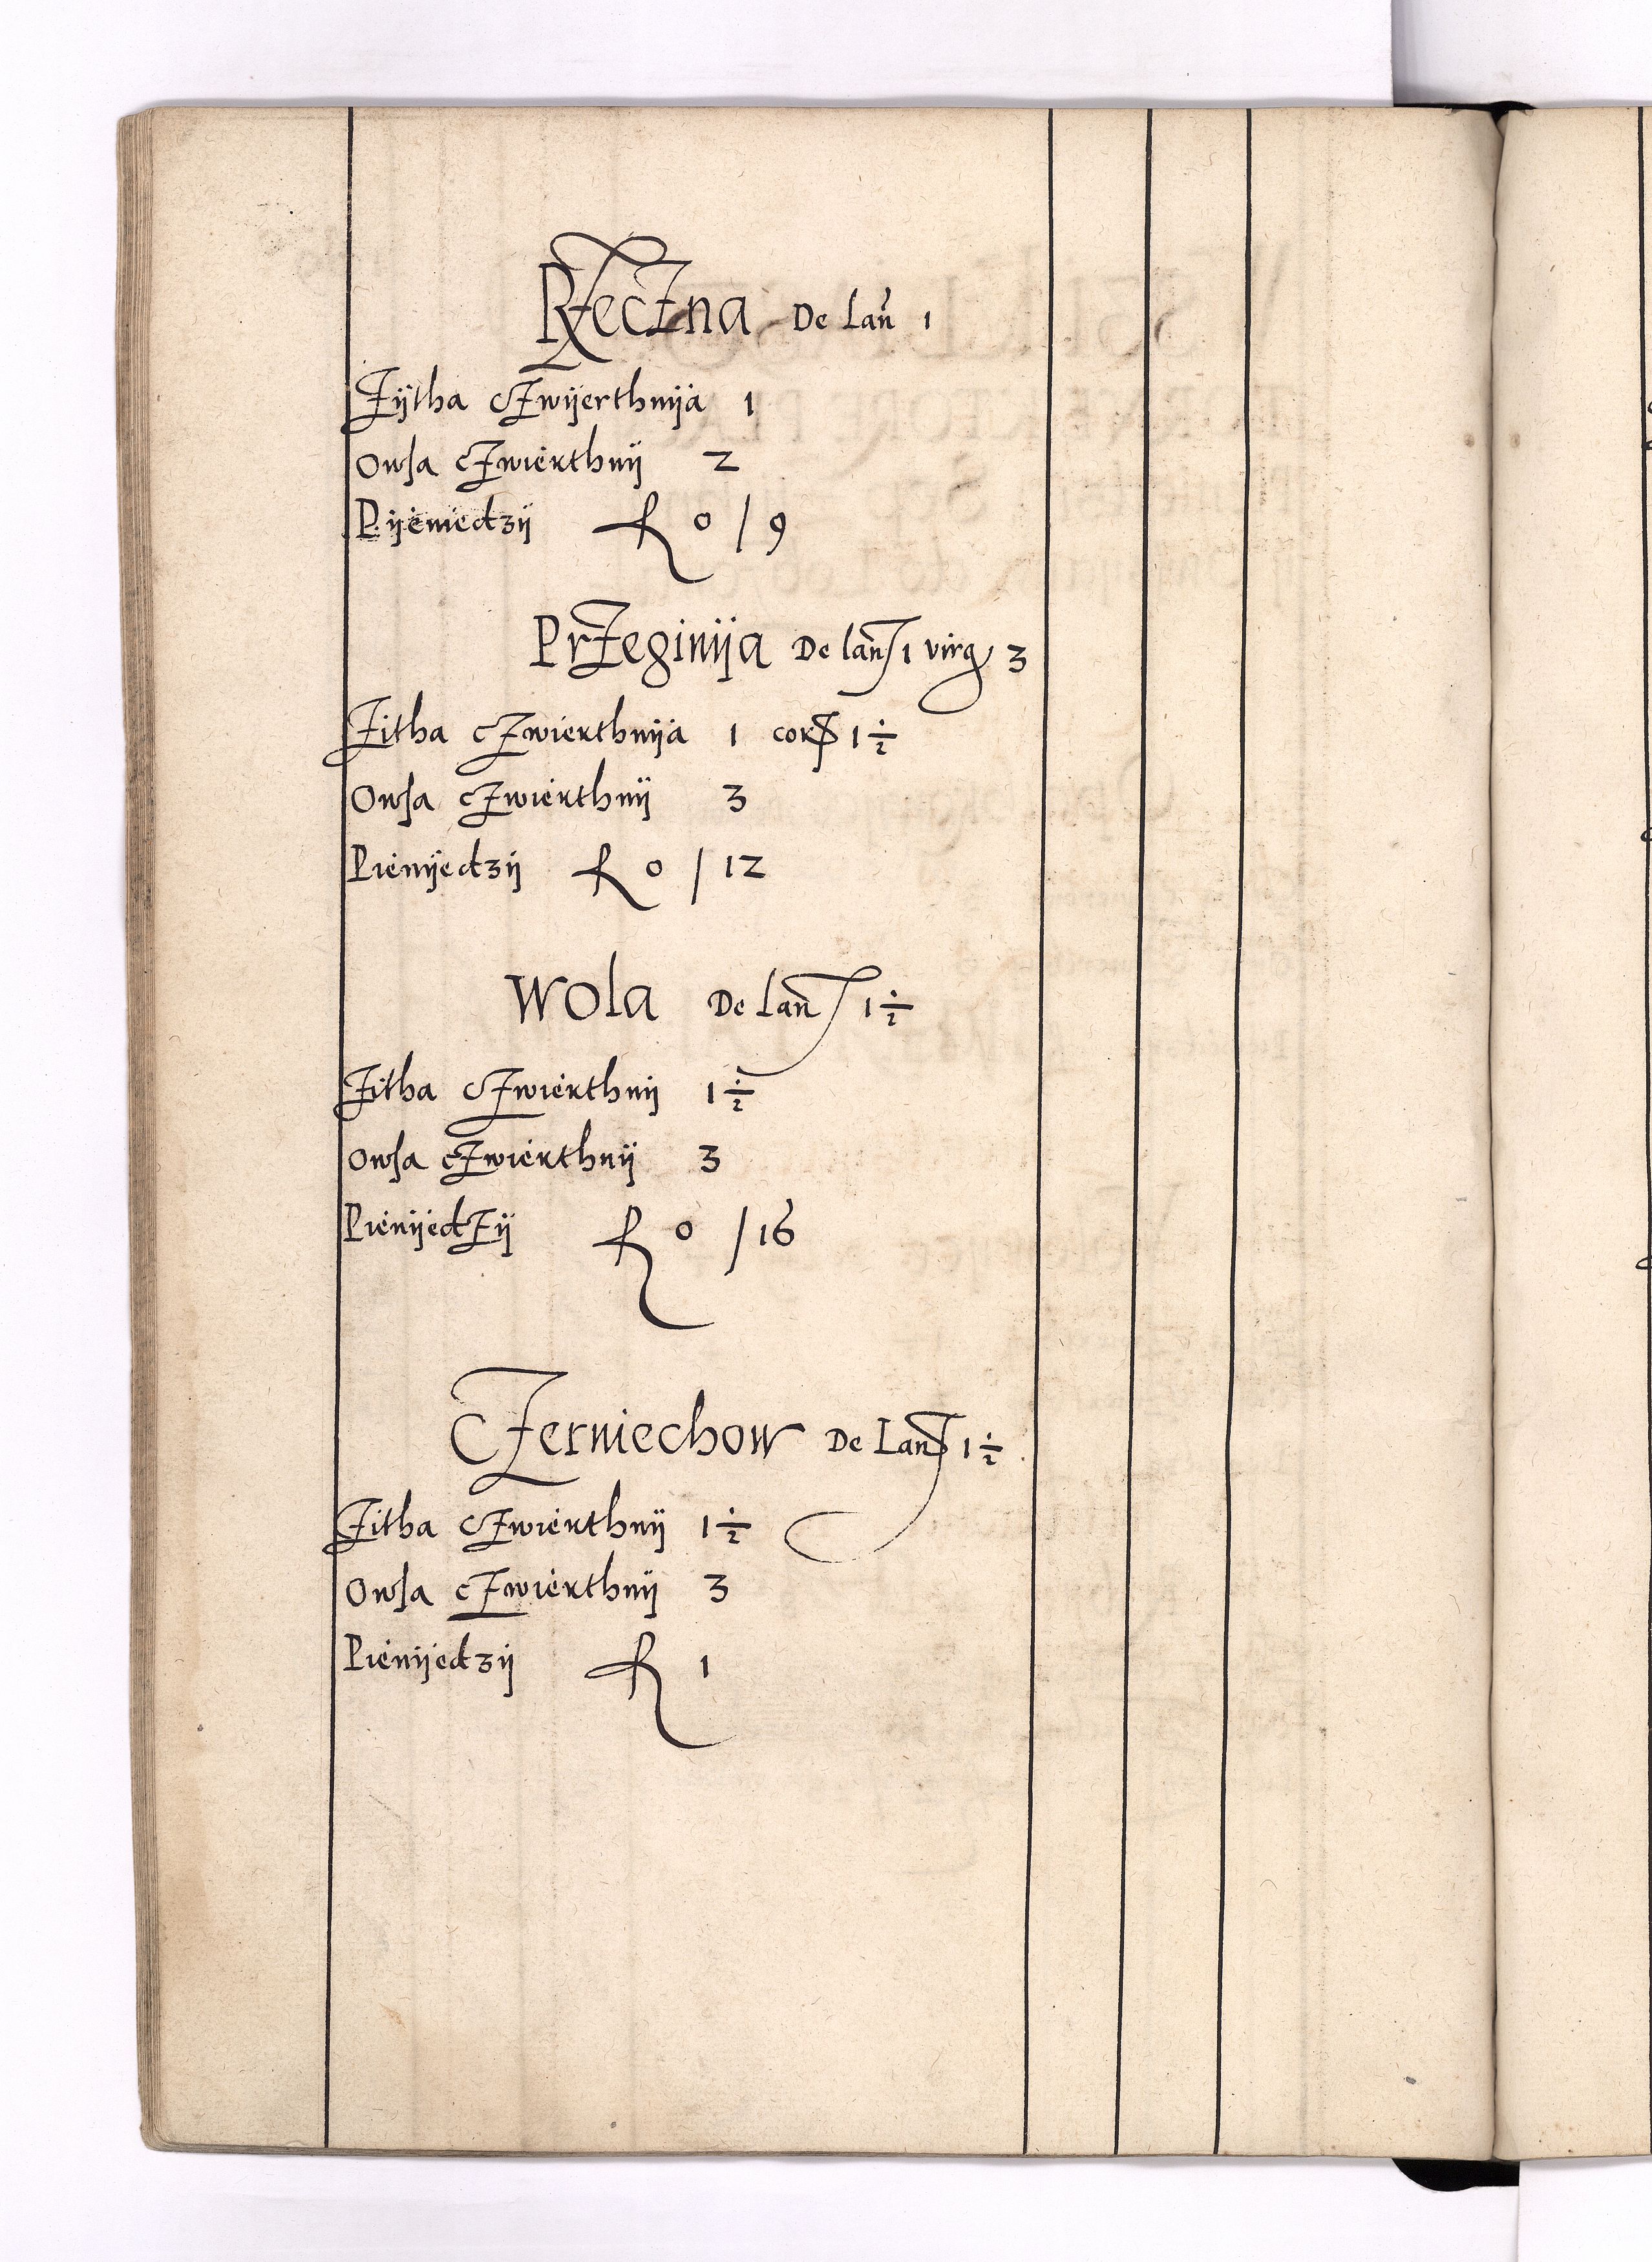 RZecZna De lań 1
Zÿtha cZwÿerthnÿa 1
Owsa cZwierthnÿ 2
Pÿeniedzÿ R 0 / 9
PrZeginÿa De lań 1 virg 3
Zitha cZwierthnÿa 1 cor 1 ½
Owsa cZwierthnÿ 3
Pienÿedzÿ R 0 / 12
Wola De lań 1 ½
Zitha cZwierthnÿ 1 ½
Owsa cZwierthnÿ 3
PienÿedZÿ R 0 / 16
CZerniechow De Lań 1 ½
Zitha cZwierthnÿ 1 ½
Owsa cZwierthnÿ 3
Pienÿedzÿ R 1